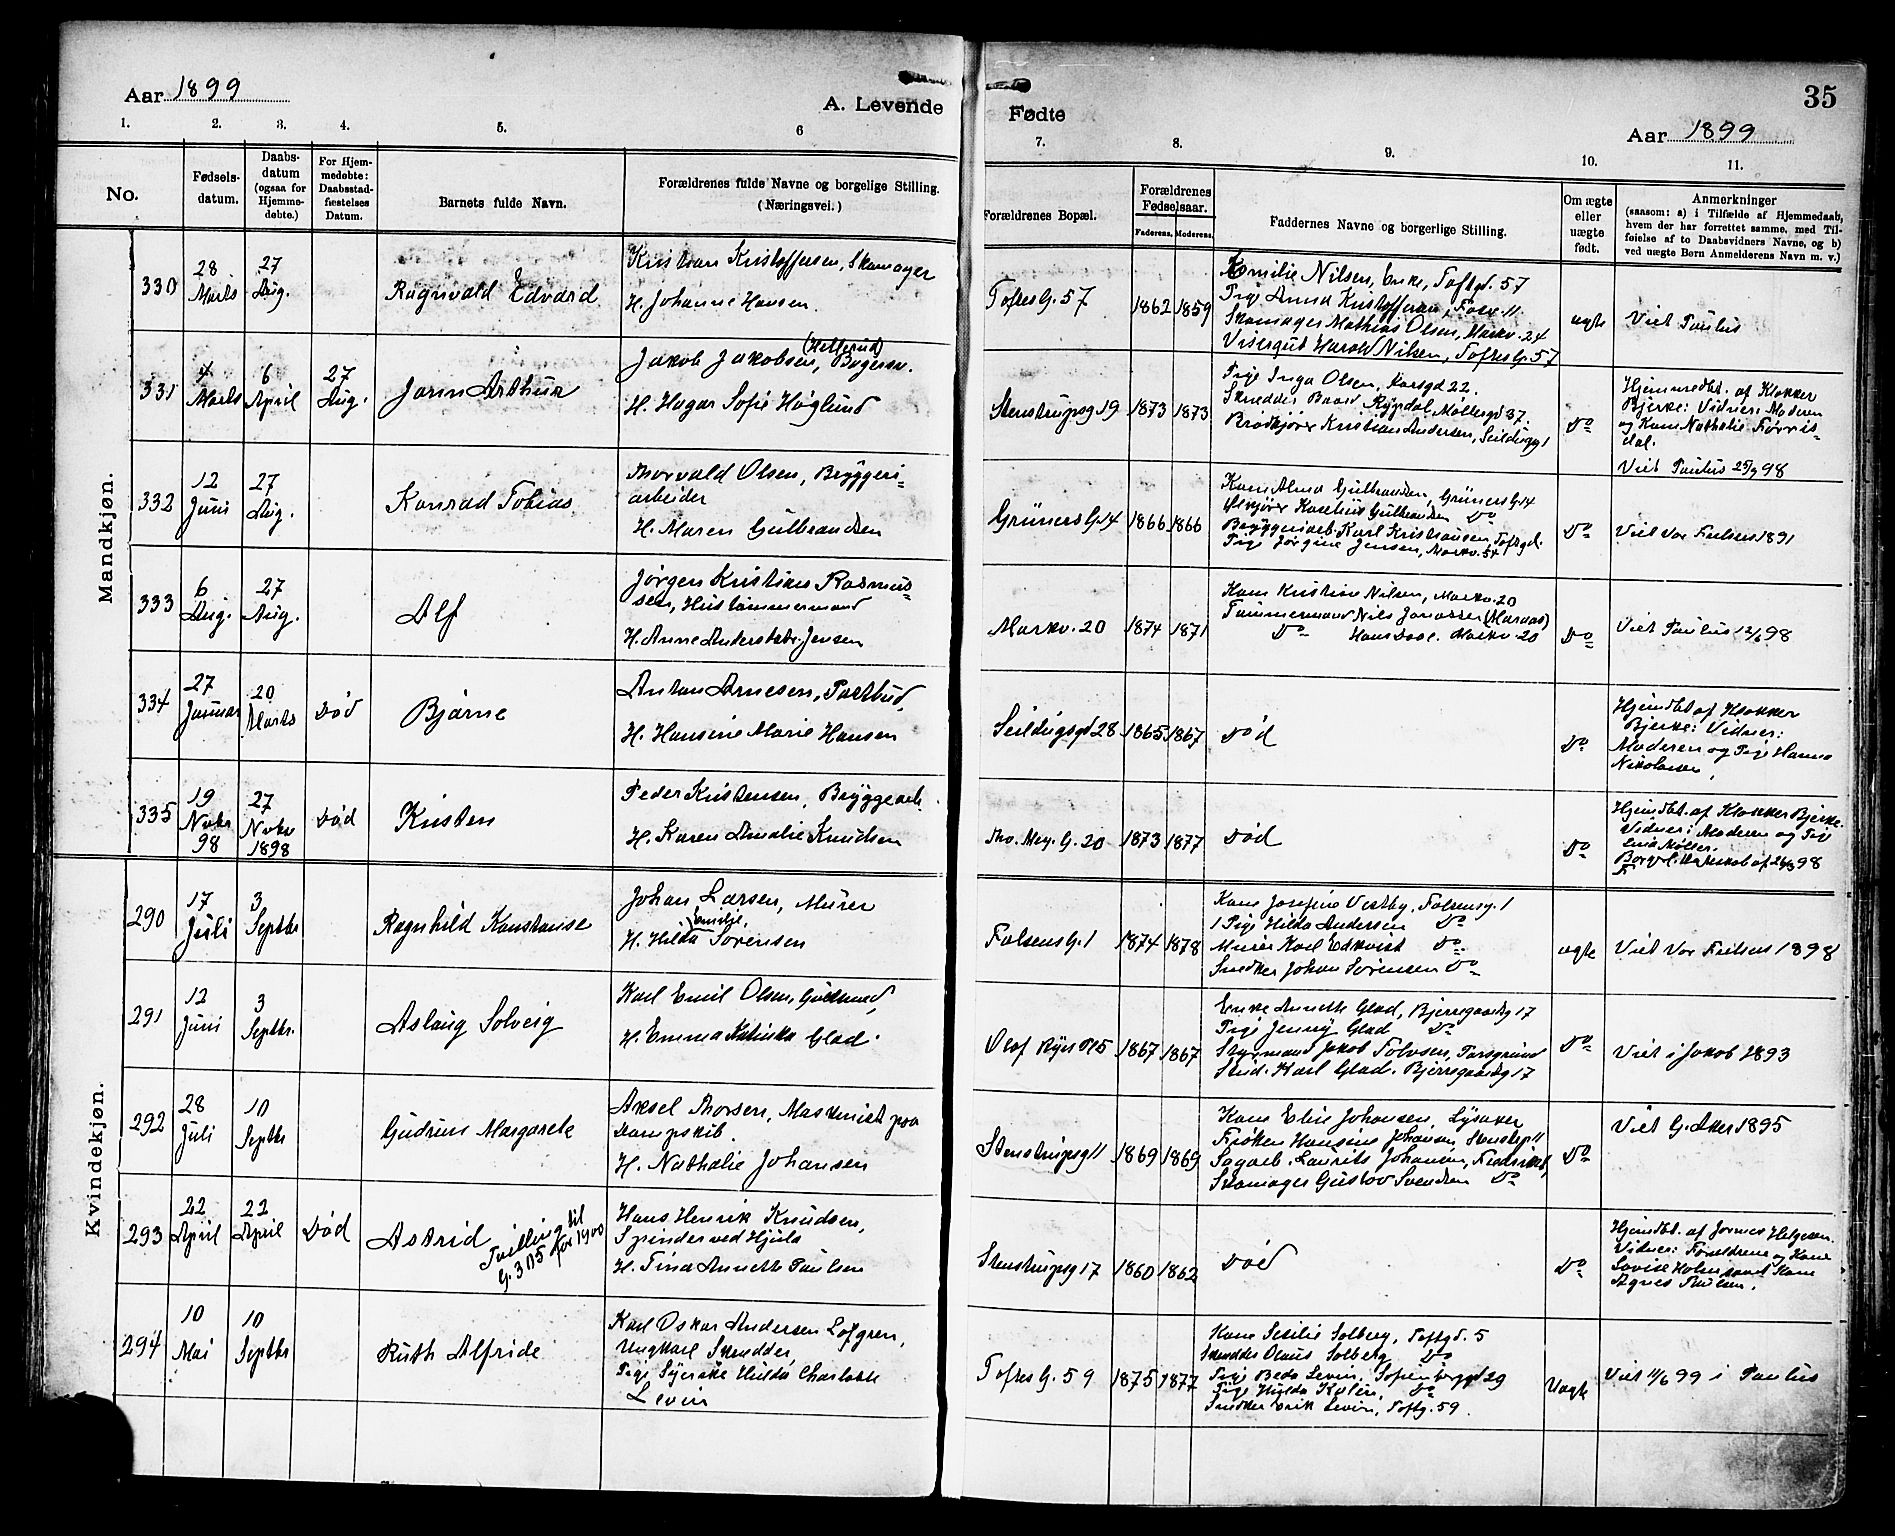 Aar 1899
A. Levende
1. 2. 3. 4. 5. 6
No.
Fødsels-
datum.
Daabs-
datum
(ogsaa for
Hjemme-
døbte.)
For Hjem-
medøbte:
Daabsstad-
fæstelses
Datum.
Barnets fulde Navn.
Forældrenes fulde Navne og borgelige Stilling.
(Næringsvei.)
Fødte
35
Aar 1899
7. 8. 9. 10. 11.
Forældrenes Bopæl.
Forældrenes
Fødselsaar.
Faderens. Moderens.
Faddernes Navne og borgerlige Stilling.
Om ægte
eller
uægte
født.
Anmerkninger
(saasom: a) i Tilfælde af Hjemmedaab,
hvem der har forrettet samme, med Til-
føielse af to Daabsvidners Navne, og b)
ved uægte Børn Anmelderens Navn m. v.)
Mandkjøn.
330
28
Marts
27
Aug.
Ragnvald Edvard
Kristian Kristoffersen, Skomager
H. Johanne Hansen.
Toftes G. 57
1862 1859
Emilie Nilsen, Enke, Toftgd. 57
Pige Anna Kristoffersen,
Skomager Mathias Olsen, Markv. 24
Visergut Harald Nilsen, Toftes G. 57
ægte
Viet Paulus
331
4
Marts
6
April
27
Aug.
Jorin Arthur
Jakob Jakobsen,
H. Hagar Sofie Høglund
Stenstrupsg 19
1873 1873
Pige Inga Olsen, Korsgd 22.
Skrædder Baard Rypdal, Møllergd 37.
Brødkjører Kristian Andersen, Seildugsg 1
Do
Hjemmedbt. af Klokker
Bjerke: Vidner: Moderen
og Kone Nathalie Førris-
dal.
Viet Paulus 25/9 98
332
12
Juni
27
Aug.
Konrad Tobias
Thorvald Olsen, Bryggeri-
arbeider
H. Maren Gulbrandsen
Grüners G. 4
1866 1866
Kone Alma Gulbrandsen, Grüners G. 4
Gulbrandsen Do
Bryggeriarb. Karl Kristiansen, Toftgd.
Pige Jørgine Jensen, Markv. 54
Do
Viet Vor Frelsers 1891
333
6
Aug.
27
Aug.
Alf
Jørgen Kristian Rasmus-
sen, Hustømmermand
H. Anne Jensen
Markv. 20
1874 1871
Kone Kristine Nilsen, Markv. 20
Tømmermand Nils
Do Markv 20
Do
Viet Paulus 98
334
27
Januar
20
Marts
Død
Bjarne
Anton Arnesen, Postbud,
H. Hansine Marie Hansen
Seildugsgd 28
1865 1867
Død
Do
Hjemdbt af Klokker
Bjerke: Vidner:
Moderen og Pige Hanna
Nikolaisen,
335
19
Novbr
98
27
Novbr
1898
Død
Kristen
Peder Kristensen, Bryggearb.
H. Karen Amalie Knudsen
Tho. Mey. G. 20
1873 1877
Død
Do
Hjemdbt. af Klokker Bjerke.
Vidner: Moderen og Pige
Møller.
Borgerl. Ægteskab af 98
Kvindekjøn.
290
17
Juli
3
Septbr
Ragnhild Konstanse
Johan Larsen, Murer
Emilie
H. Hilda Sørensen
Falsens G. 1
1874 1878
Kone Josefine Vestby, Falsensg. 1
Pige Hilda Andersen Do
Murer Karl Edkvist Do
Snedker Johan Sørensen Do
ægte
Viet Vor Frelsers 1898
291
12
Juni
3
Septbr.
Aslaug Solveig
Karl Emil Olsen, Gulsmed,
H. Emma Katinka Glad.
Olaf Ryes Pl 5
1867 1867
Enke Annette Glad, Bjerregaardsg 17
Pige Jenny Glad Do
Styrmand Jakob Tolvsen, Porsgrund
Stud. Karl Glad. Bjerregaardsg 17
Do
Viet i Jakob 1893
292
28
Juli
10
Septbr
Gudrun Margarete
Aksel Thorsen, Maskinist paa
Dampskib.
H. Nathalie Johansen
Stenstrupsg 11
1869 1869
Kone Elise Johansen, Lysaker
Frøken Hansine Johansen, Stenstrpg 11
Sagarb. Laurits Johansen,
Skomager Gustav Svendsen Do
Do
Viet G. Aker 1895
293
22
April
22
April
Død
Astrid
Tvilling til
G. 305 for 1900
Hans Henrik Knudsen,
Spinder ved Hjula
H. Tina Annette Paulsen
Stenstrupsg 17
1860 1862
Død
Do
Hjemdbt. af Jormor Helgesen.
Vidner: Forældrene og Kone
Lovise Holm samt Kone
Agnes Paulsen.
294
10
Mai
10
Septbr
Ruth Alfride
Karl Oskar Andersen Lofgren,
Ungkarl Skrædder,
Pige Syerske Hilda Charlotte
Levin
Toftes G. 59
1875 1877
Kone Sesilie Solberg, Toftgd. 5
Skrædder Olaus Solberg Do
Pige Beda Levin, Sofienberggd 29
Pige Hulda Do
Snedker Erik Levin, Toftg. 59.
Uægte
Viet 11/6 99 i Paulus